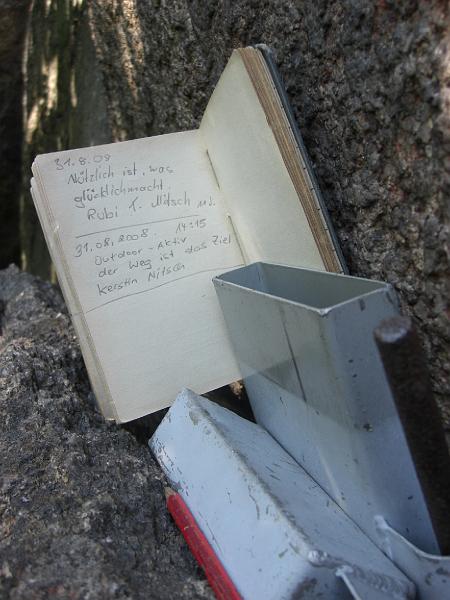 31.8.08
Nützlich ist, was
glücklichmacht.
Rubi T. Nitsch
31.08.2008. 14:15
Outdoor-Aktiv
der Weg ist das Ziel
Kerstin Nitsch